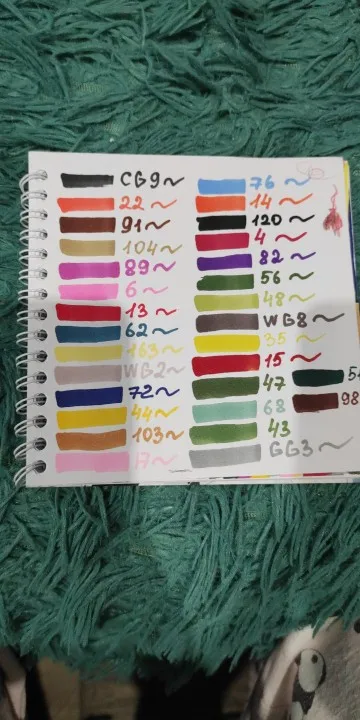 CG9~
22~
91~
104~
89~
6~
13~
62~
163~
WG2~
72~
44~
103~
17~
76~
14~
120~
4~
82~
56~
48~
WG8~
35~
15~
47
68
43
GG3~
98